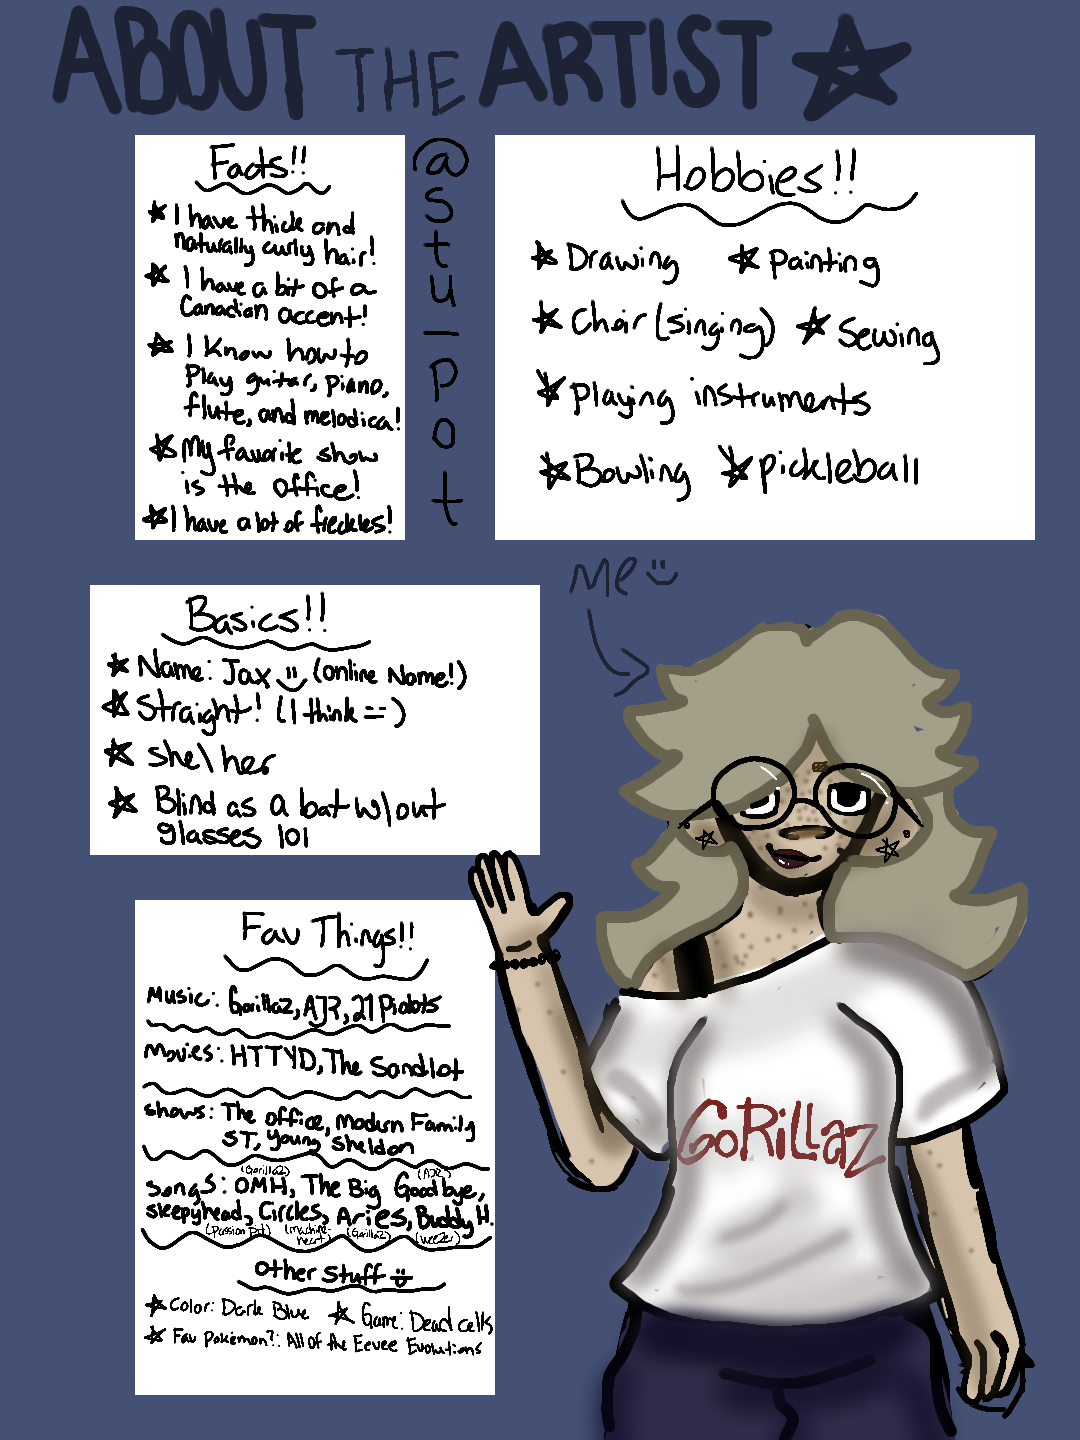 ABOUT THE ARTIST
@stu_pot
Facts!!
I have thick and
naturally curly hair!
I have a bit of a
Canadian accent!
I know how to
Play guitar, piano,
flute, and melodica!
My favorite show
is the office!
I have a lot of freckles!
Hobbies!!
Drawing Painting
Choir (singing) Sewing
Playing instruments
Bowling pickleball
me
Basics!!
Name: Jax (online Name!)
Straight! (I think ==)
she\her
Blind as a bat w/out
glasses lol
Fav Things!!
Music: Gorillaz, AJR, 21 Pilots
Movies: HTTYD, The Sandlot
shows: The office, Modern Family
ST, Young Sheldon
(Gorillaz) (AJR)
songs: OMH, The Big Goodbye,
sleepyhead, Circles, Aries, Buddy H.
(Passion Pit) (machine-heart) (Gorillaz) (weezer)
other stuff
Color: Dark Blue Game: Dead cells
Fav Pokémon?: All of the Eevee Evolutions
GoRiLLaz